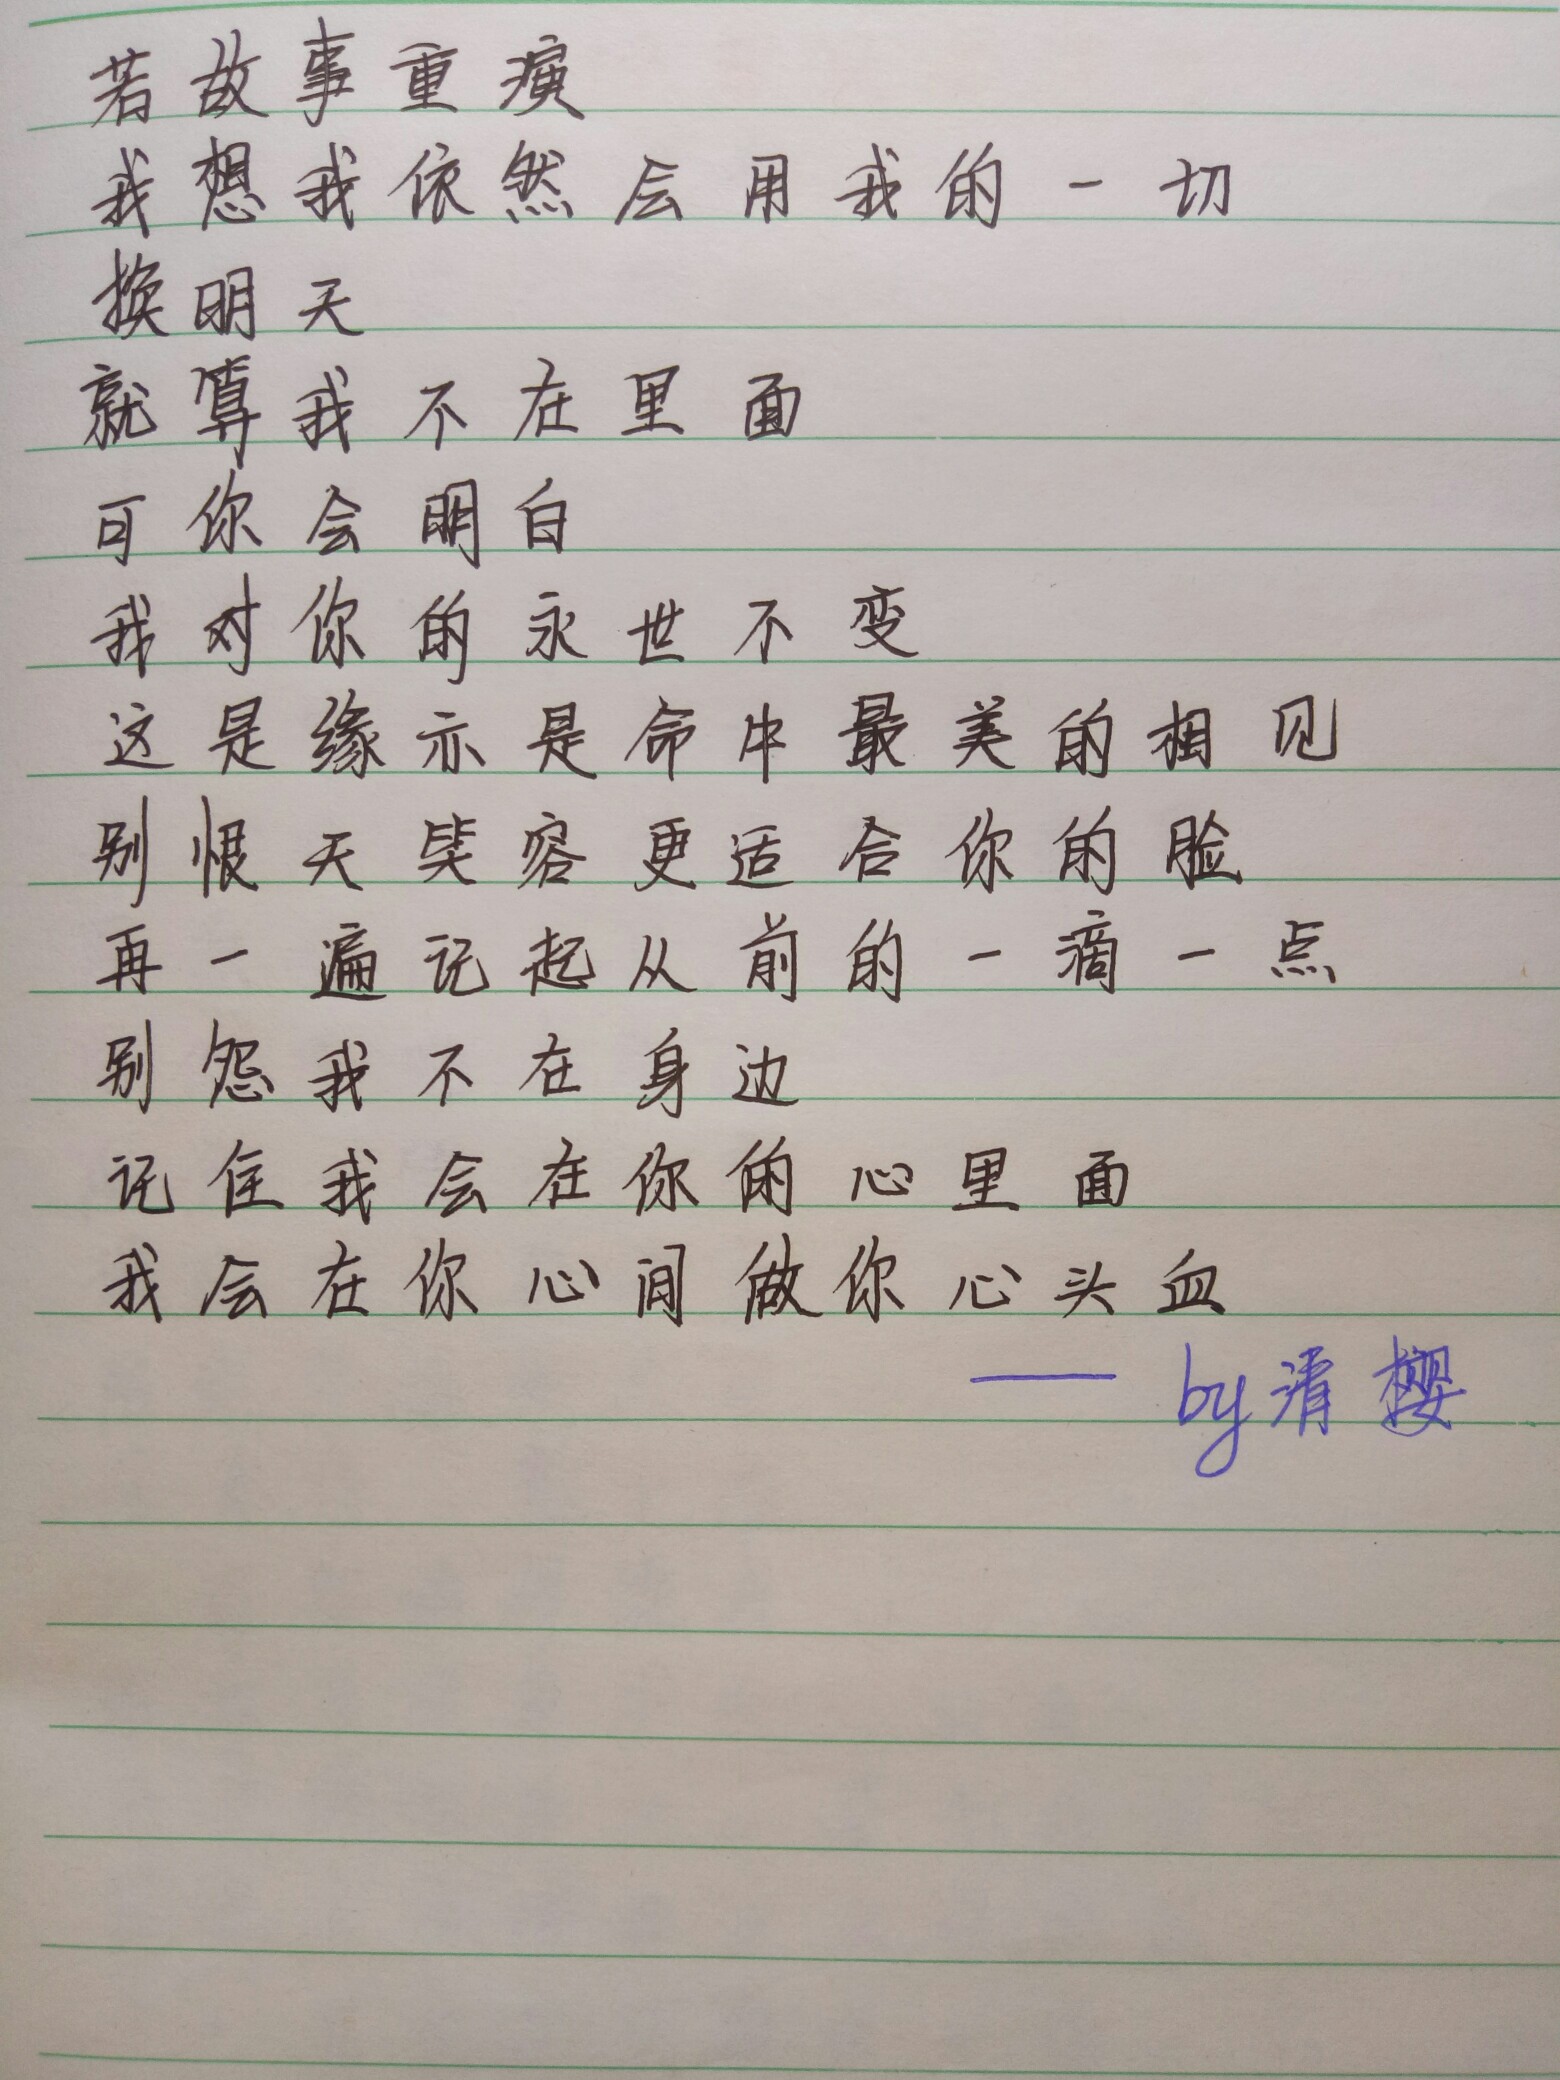 若故事重演
我想我依然会用我的一切
换明天
就算我不在里面
可你会明白
我对你的永世不变
这是缘亦是命中最美的相见
别恨天笑容更适合你的脸
再一遍记起从前的一滴一点
别怨我不在身边
记住我会在你的心里面
我会在你心间做你心头血
——by清樱